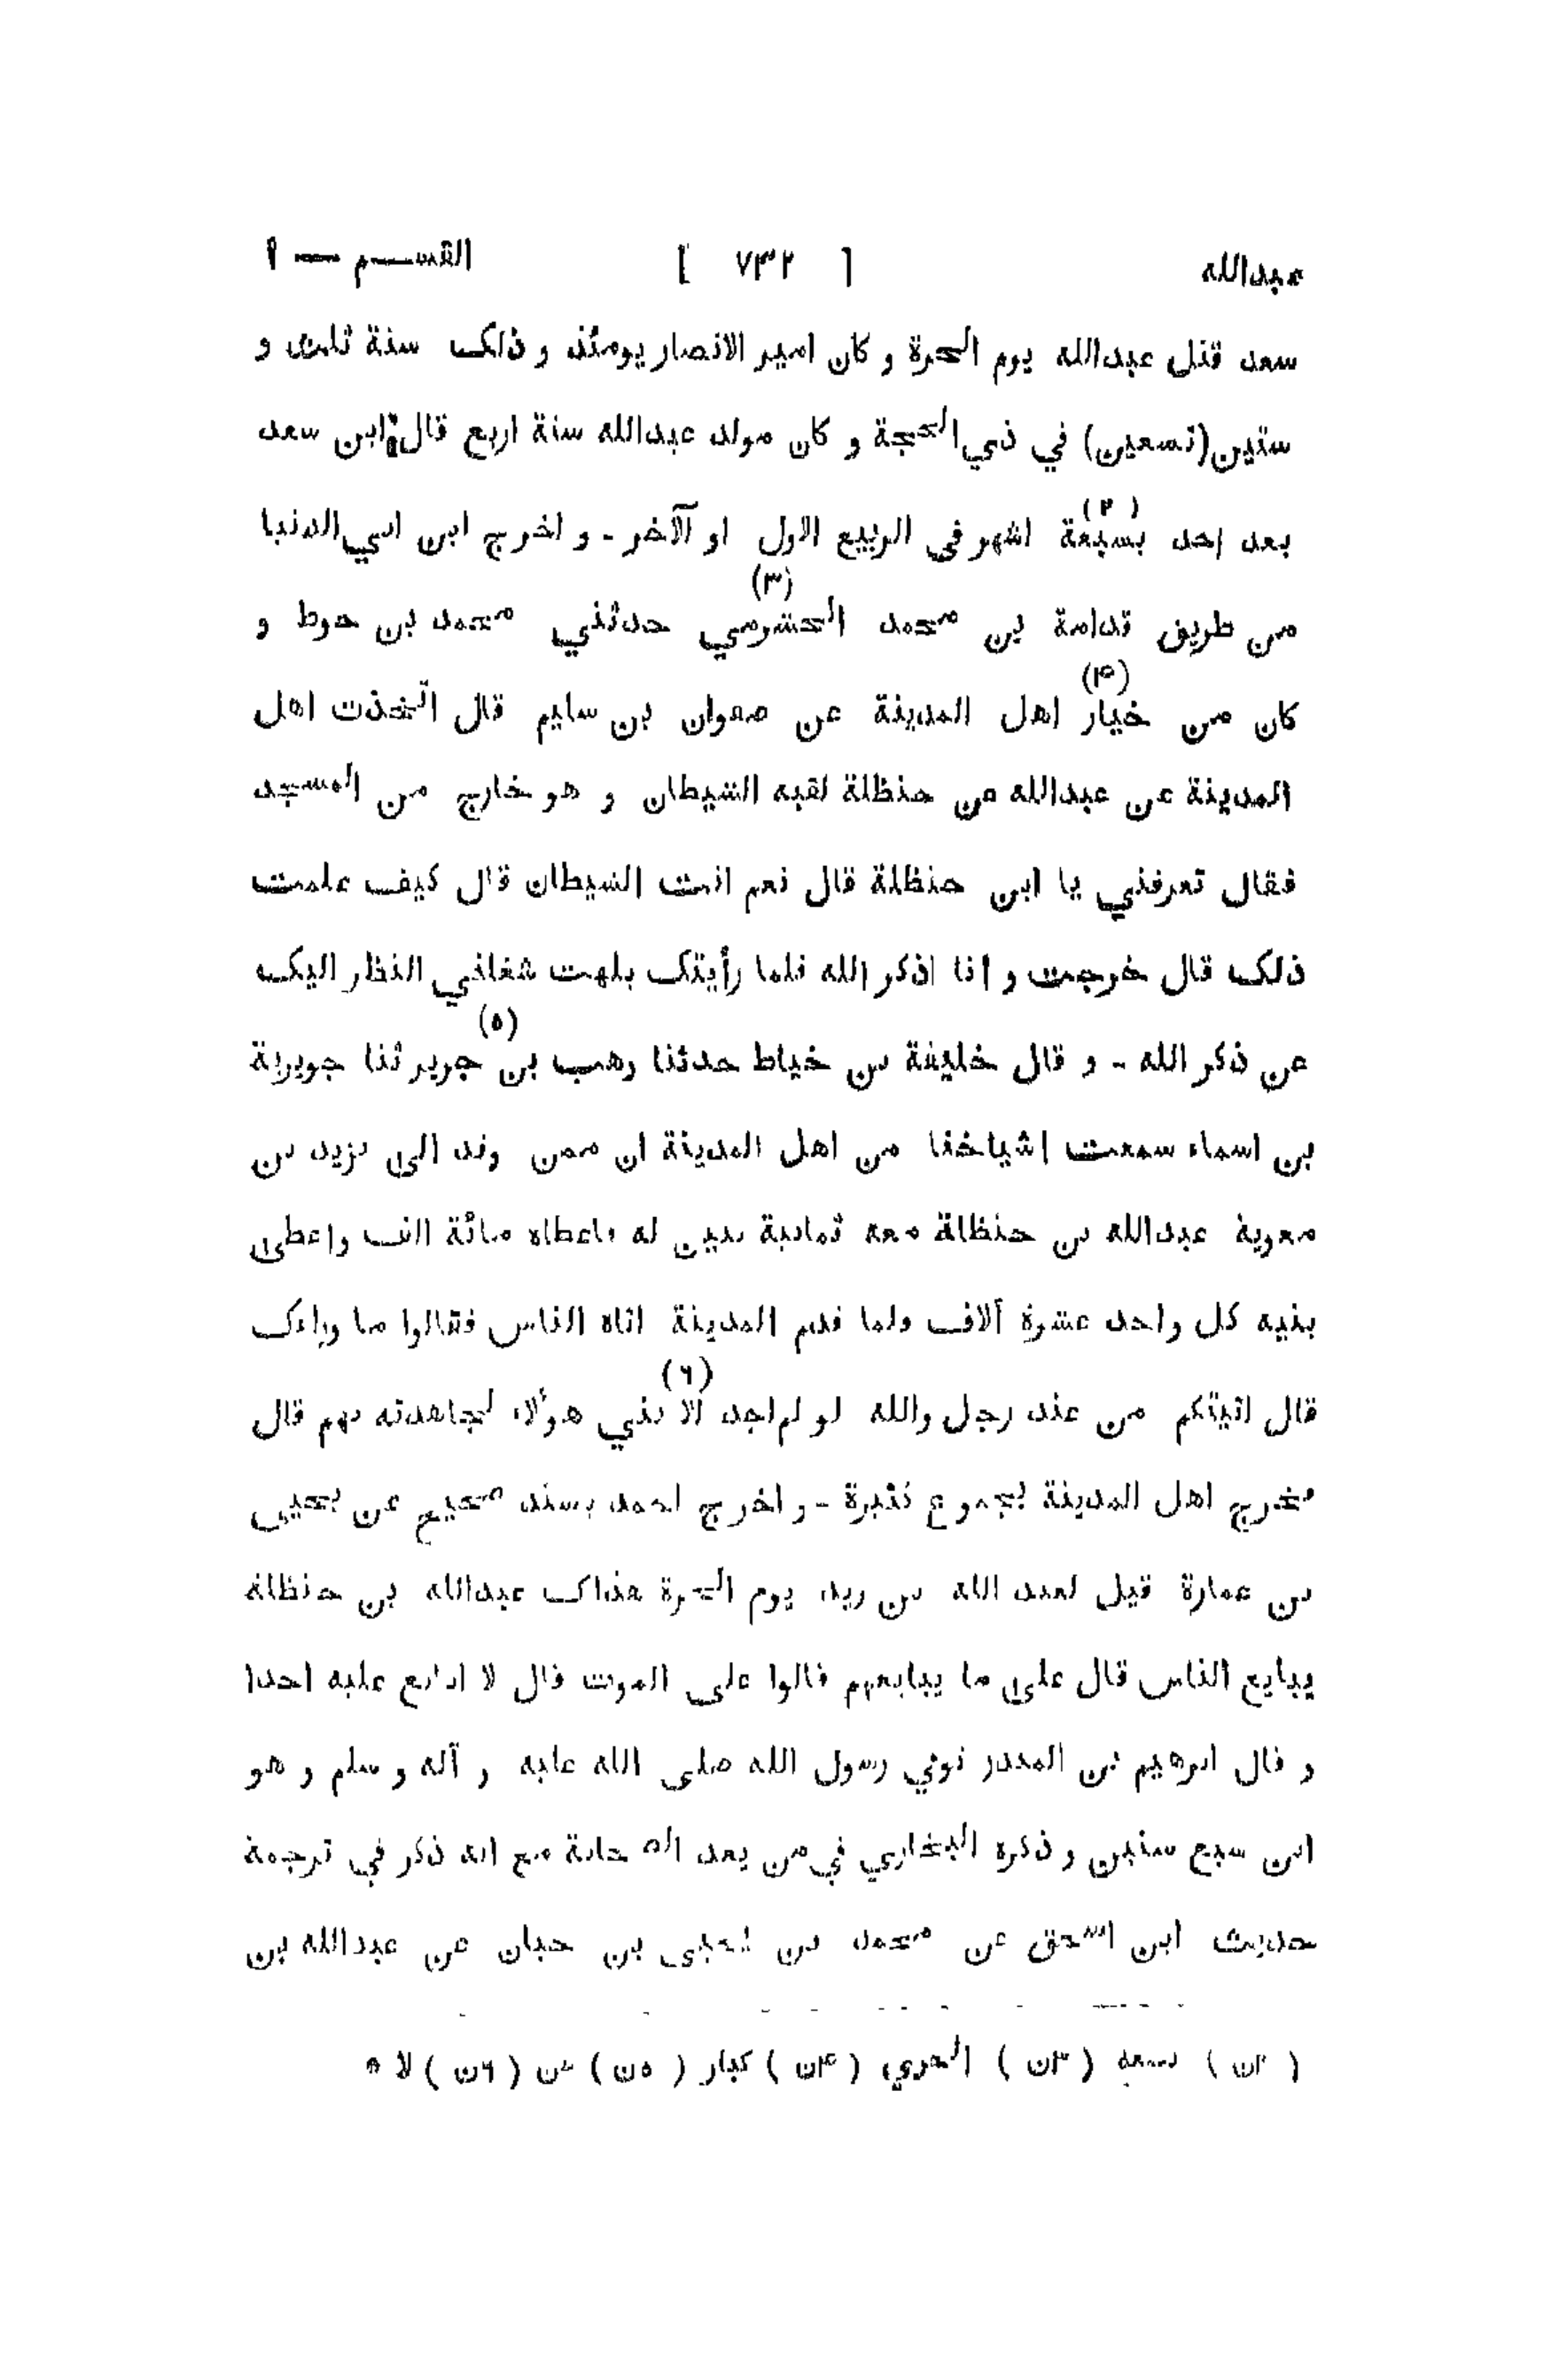 عبدالله [ ٧٣٢ ] القسـم — ١
سعد قتل عبدالله يوم الحرة و كان امير الانصار يومئذ و ذلك سنة ثلث و
ستين (تسعين) في ذي الحجة و كان مولد عبدالله سنة اربع قال ابن سعد
بعد احد بسبعة (٢) اشهر في الربيع الاول او الآخر - و اخرج ابن ابي الدنيا
من طريق قدامة بن محمد الخشرمي (٣) حدثني محمد بن حوط و
كان من خيار (٤) اهل المدينة عن صفوان بن سليم قال اتخذت اهل
المدينة عن عبدالله من حنظلة لقيه الشيطان و هو خارج من المسجد
فقال تعرفني يا ابن حنظلة قال نعم انت الشيطان قال كيف علمت
ذلك قال خرجت و أنا اذكر الله فلما رأيتك بلهت شغلني النظر اليك
عن ذكر الله - و قال خليفة بن خياط حدثنا وهب بن (٥) جرير ثنا جويرية
بن اسماء سمعت اشياخنا من اهل المدينة ان ممن وفد الى يزيد بن
معوية عبدالله بن حنظلة معه ثمانية بنين له فاعطاه مائة الف واعطى
بنيه كل واحد عشرة آلاف فلما قدم المدينة اتاه الناس فقالوا ما وراءك
قال اتيتكم من عند رجل والله لو لم اجد الا (٦) بني هؤلاء لجاهدته بهم قال
فخرج اهل المدينة بجموع كثيرة - و اخرج احمد بسند صحيح عن يحيى
بن عمارة قيل لعبد الله بن زيد يوم الحرة هذاك عبدالله بن حنظلة
يبايع الناس قال على ما يبايعهم قالوا على الموت قال لا ابايع عليه احدا
و قال ابرهيم بن المنذر توفي رسول الله صلى الله عليه و آله و سلم و هو
ابن سبع سنين و ذكره البخاري في من يعد الصحابة مع انه ذكر في ترجمة
حديث ابن اسحق عن محمد بن يحيى بن حبان عن عبدالله بن
( ٢ن ) تسعه ( ٣ن ) الحري ( ٤ن ) كبار ( ٥ن ) عن ( ٦ن ) لا *